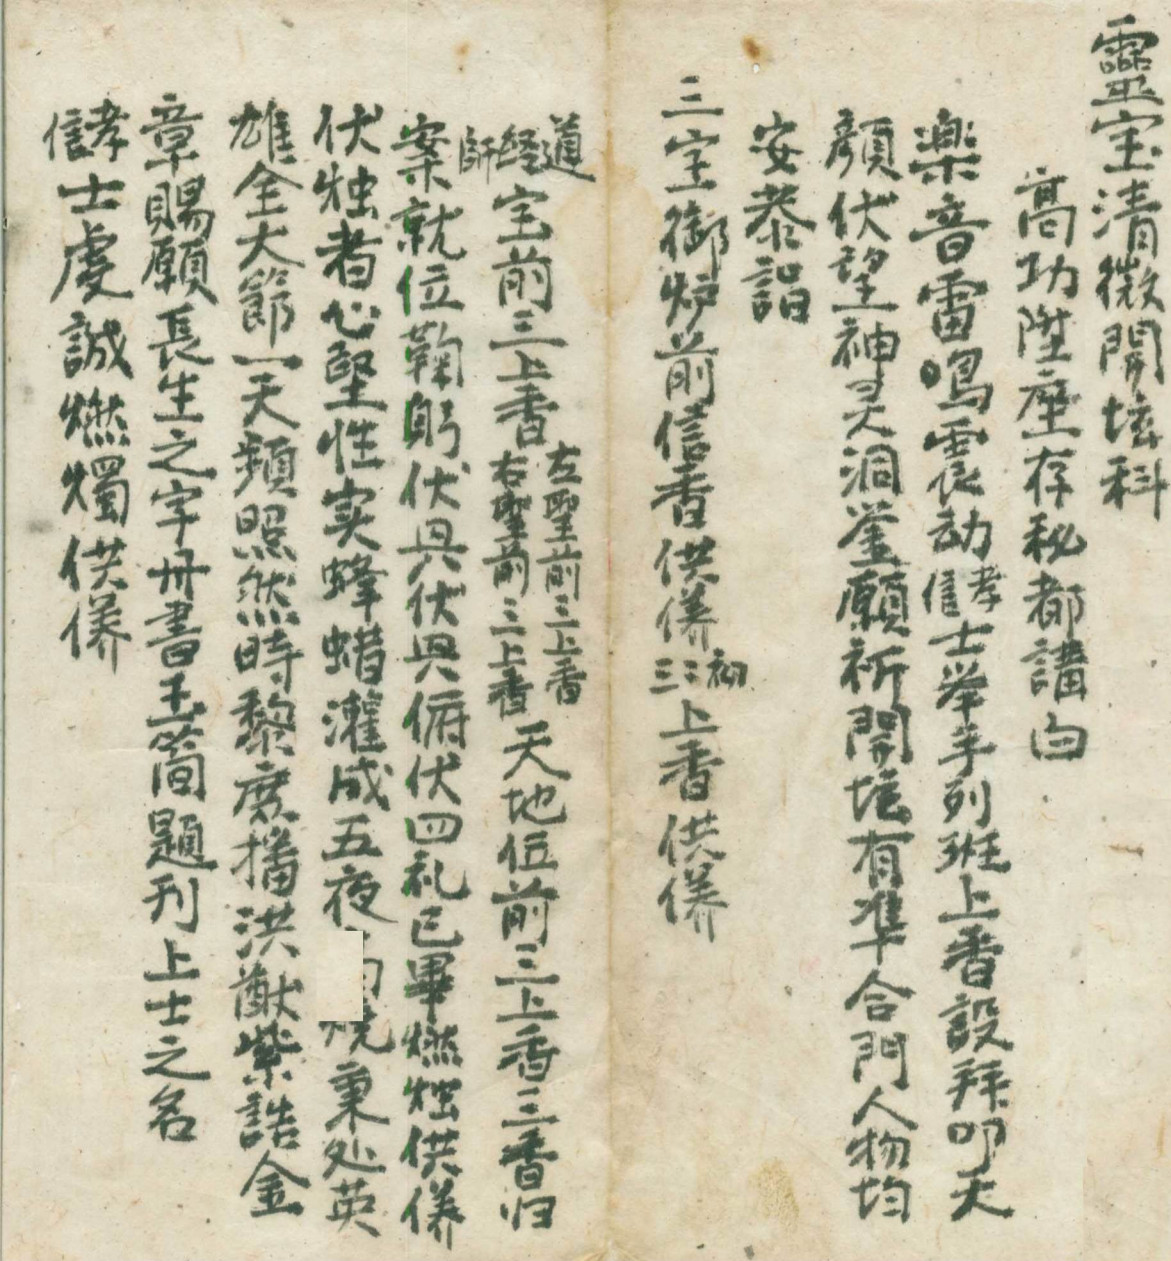 靈宝清微開坛科
高功陞座存秘都講白
楽音雷鳴震动孝信士举手列班上香設拜叩天
顔伏望神灵洞鉴願祈開坛有准合門人物均
安恭詣
三宝御炉前信香供俻初二三上香供俻
道経師宝前三上香左聖前三上香右聖前三上香天地位前三上香三香归
案就位鞠躬伏興伏興俯伏四礼已畢燃烛供俻
伏烛者心堅性实蜂蜡灌成五夜焼秉处英
雄全大節一天頼照然時黎庶播洪猷紫誥金
章賜願長生之字丹書玉简題刊上士之名
孝信士虔誠燃燭供俻